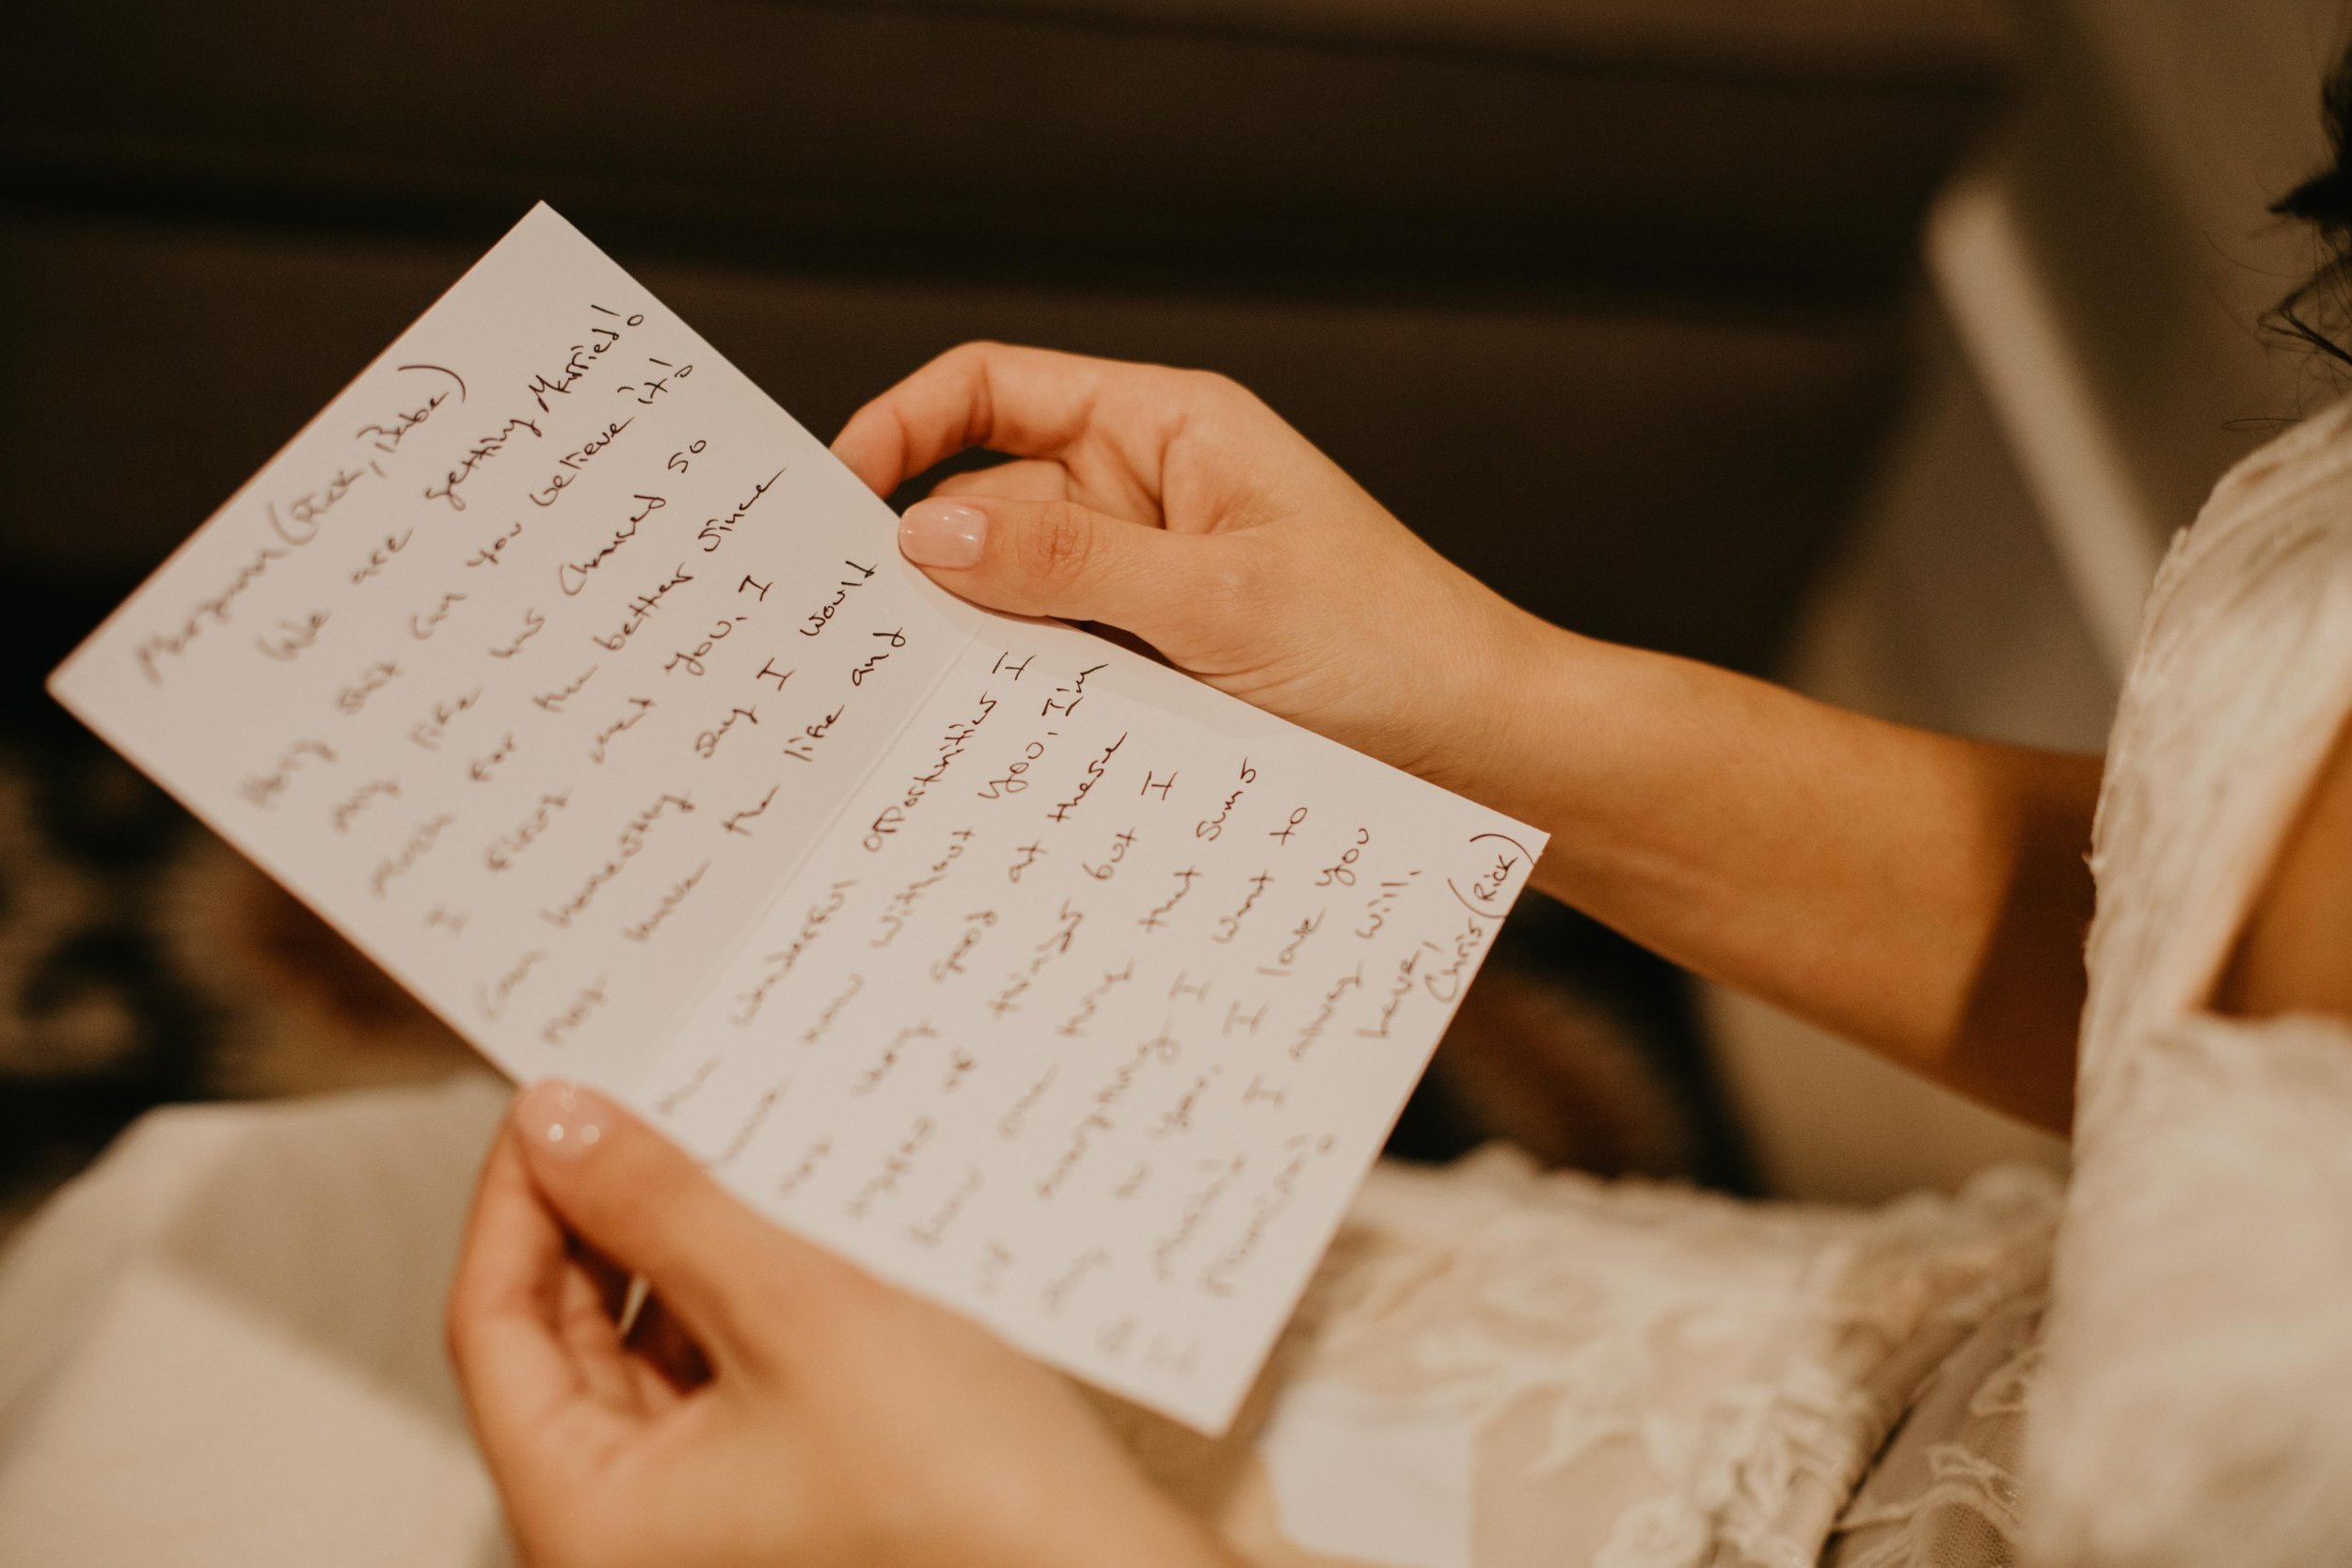 Morgan (Rick, Babe)
We are getting Married!
Holy shit can you believe it!
my life has changed so
much for the better since
I first met you, I
can honestly say I would
not have the life and
the wonderful opportunities I
have now without you, I'm
not very good at these
types of things but I
know one thing that sums
up everything I want to
say to you, I love you
I always will,
Promise! Love,
Chris (Rick)